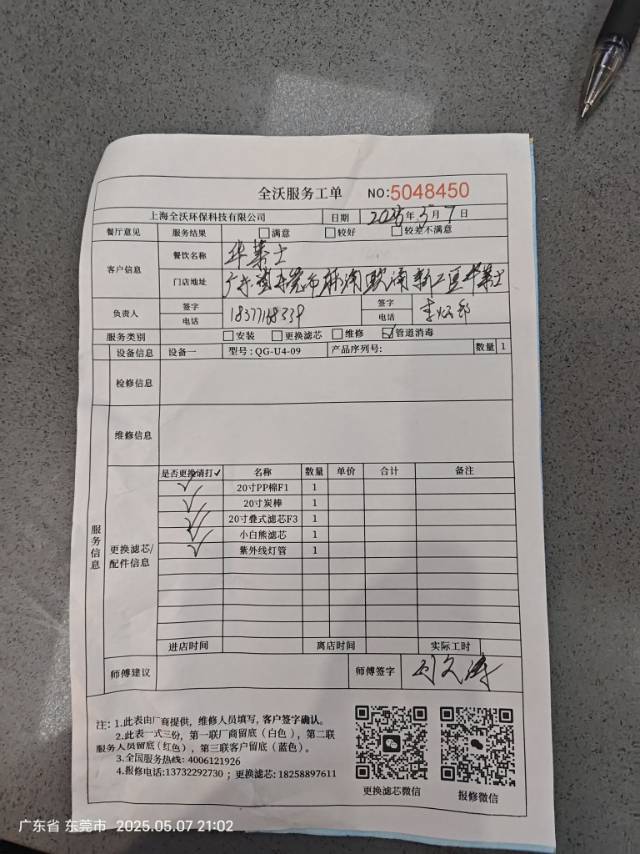 全沃服务工单 NO:5048450
上海全沃环保科技有限公司 日期 2025年5月7日
餐厅意见 服务结果 □满意 □较好 □较差不满意
客户信息 餐饮名称 华莱士
门店地址 广东省东莞市麻涌欧涌新工区华莱士
负责人 签字 签字
电话 18377168339 电话
服务类别 □安装 □更换滤芯 □维修 ☑管道消毒
设备信息 设备一 型号:QG-U4-09 产品序列号: 数量 1
检修信息
维修信息
服务信息
更换滤芯/配件信息
是否更换请打✓ 名称 数量 单价 合计 备注
✓ 20寸PP棉F1 1
✓ 20寸炭棒 1
✓ 20寸叠式滤芯F3 1
✓ 小白熊滤芯 1
✓ 紫外线灯管 1
进店时间 离店时间 实际工时
师傅建议 师傅签字
注: 1.此表由厂商提供，维修人员填写, 客户签字确认。
2.此表一式三份，第一联厂商留底(白色)，第二联
服务人员留底(红色)，第三联客户留底（蓝色）。
3.全国服务热线: 4006121926
4.报修电话:13732292730；更换滤芯: 18258897611
更换滤芯微信 报修微信
广东省 东莞市 2025.05.07 21:02